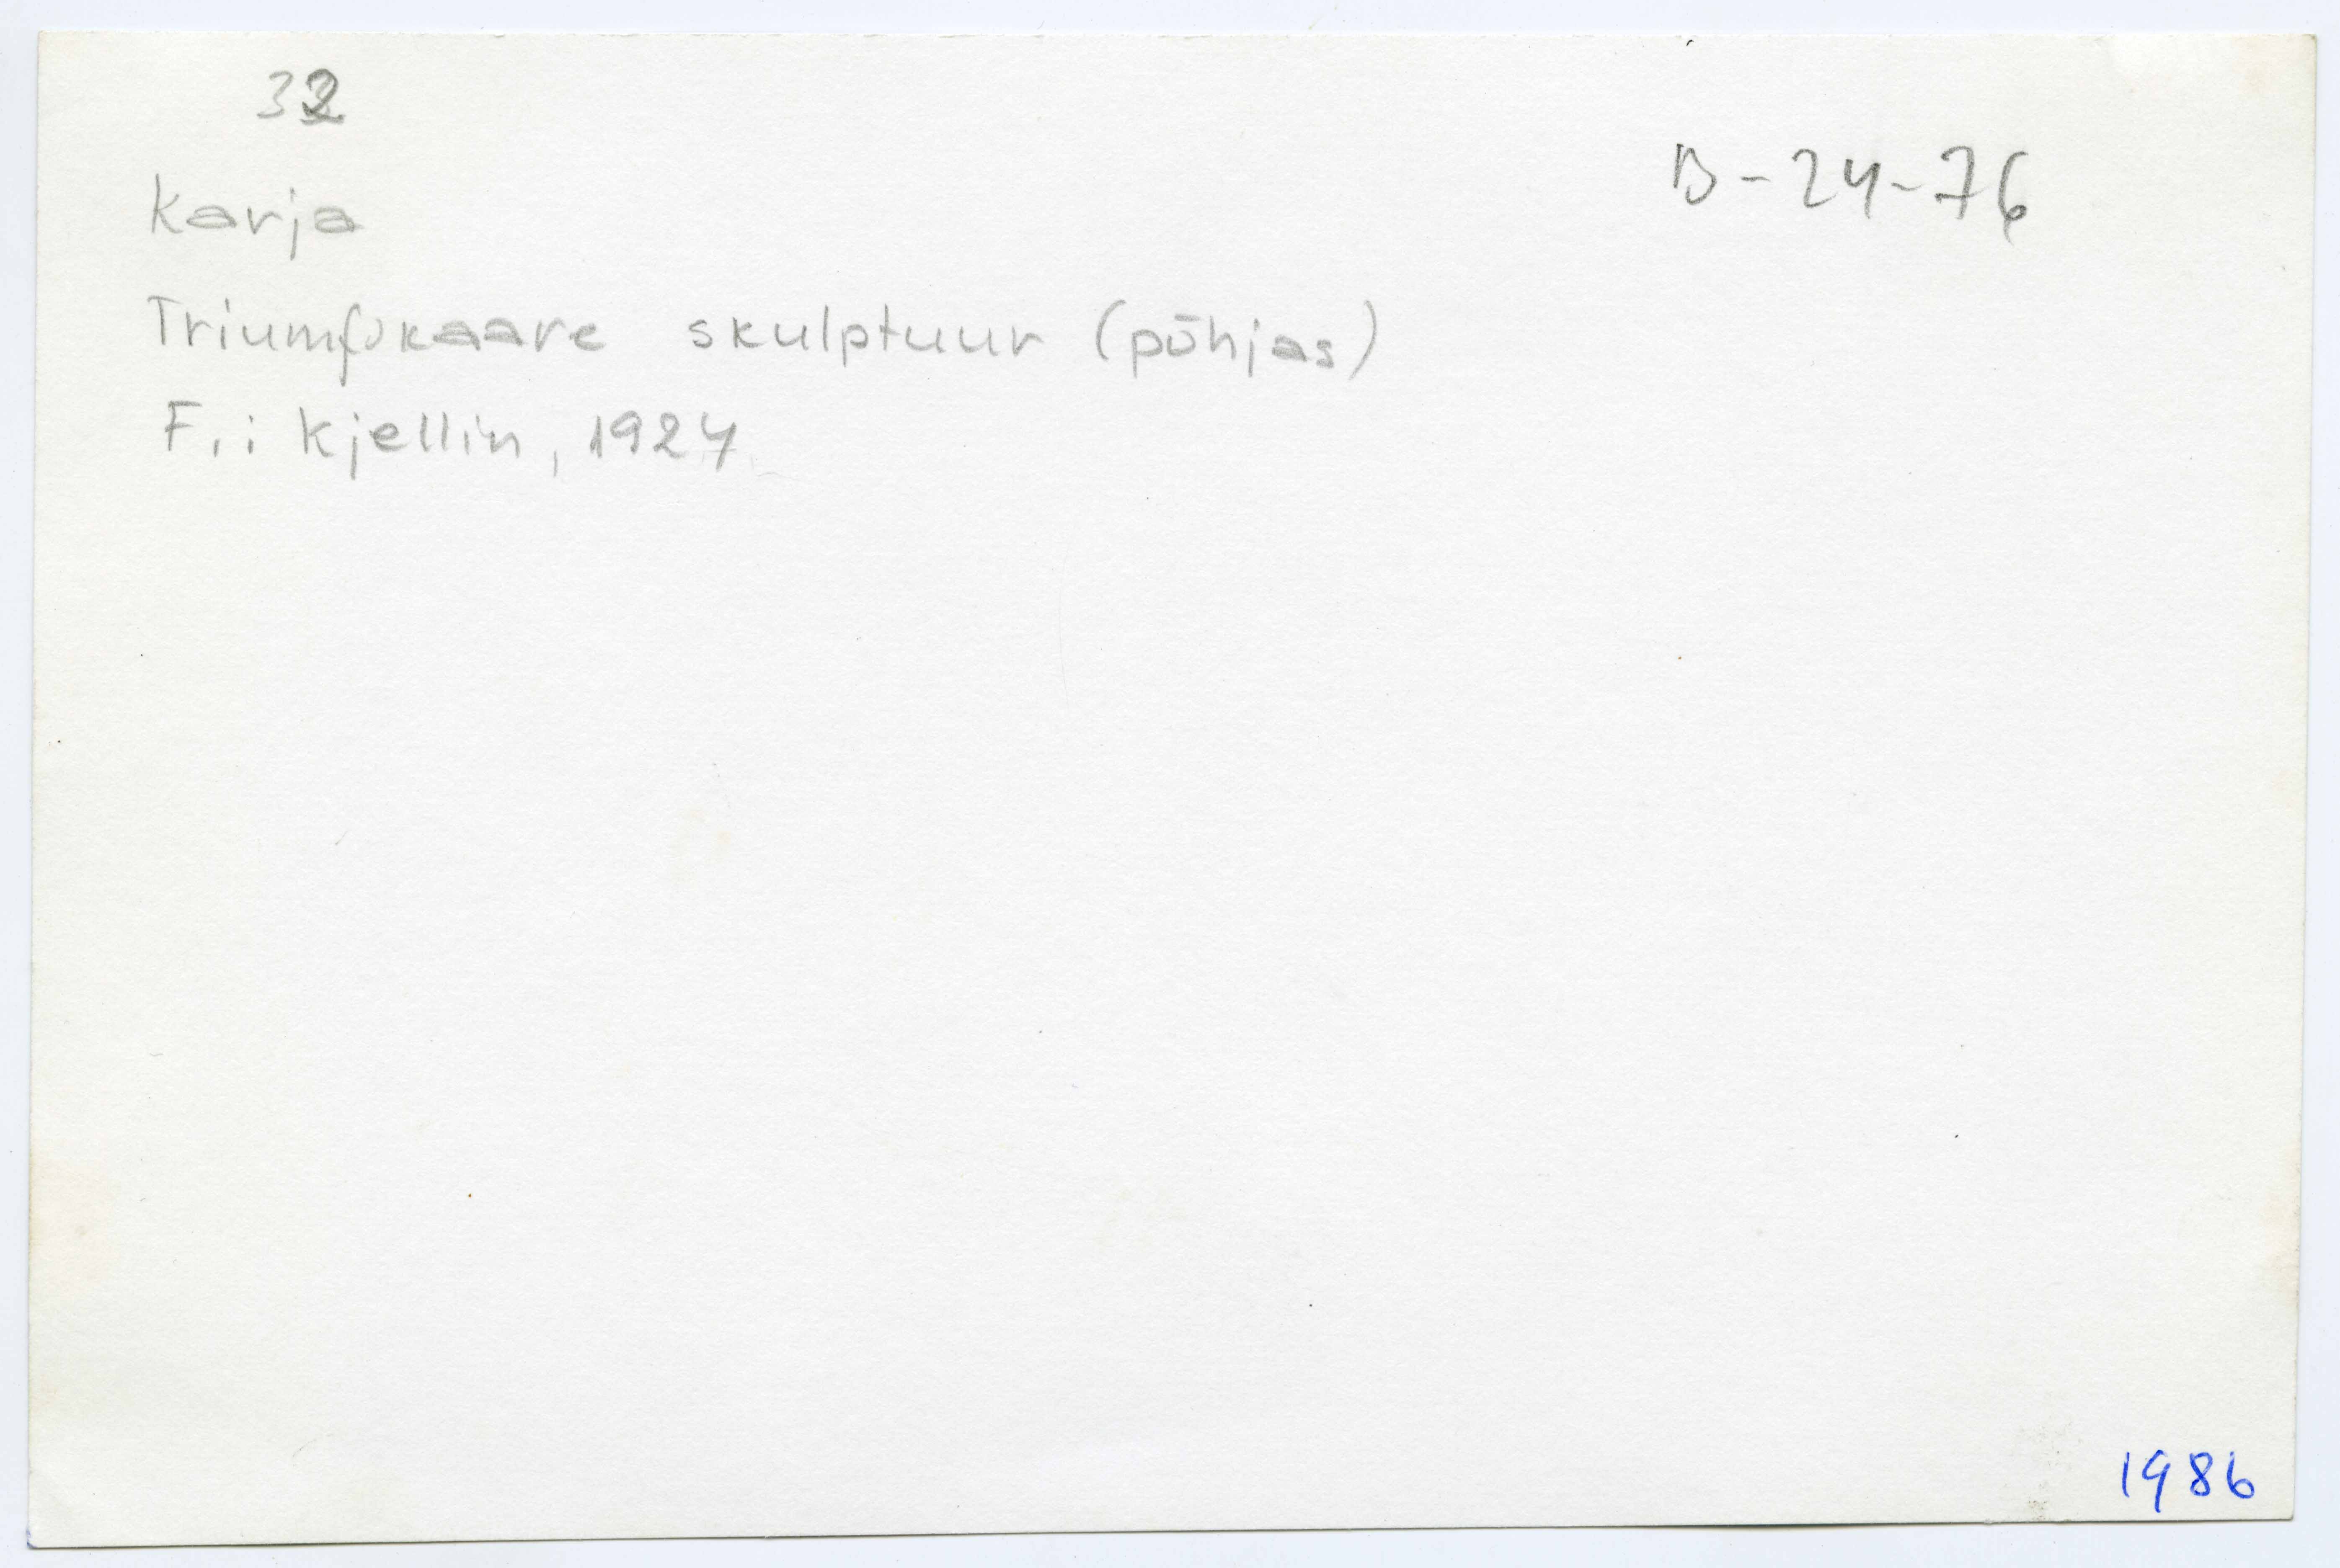 32
Karja
B-24-76
Triumfikaare skulptuur (põhjas)
F.: Kjellin, 1924
1986